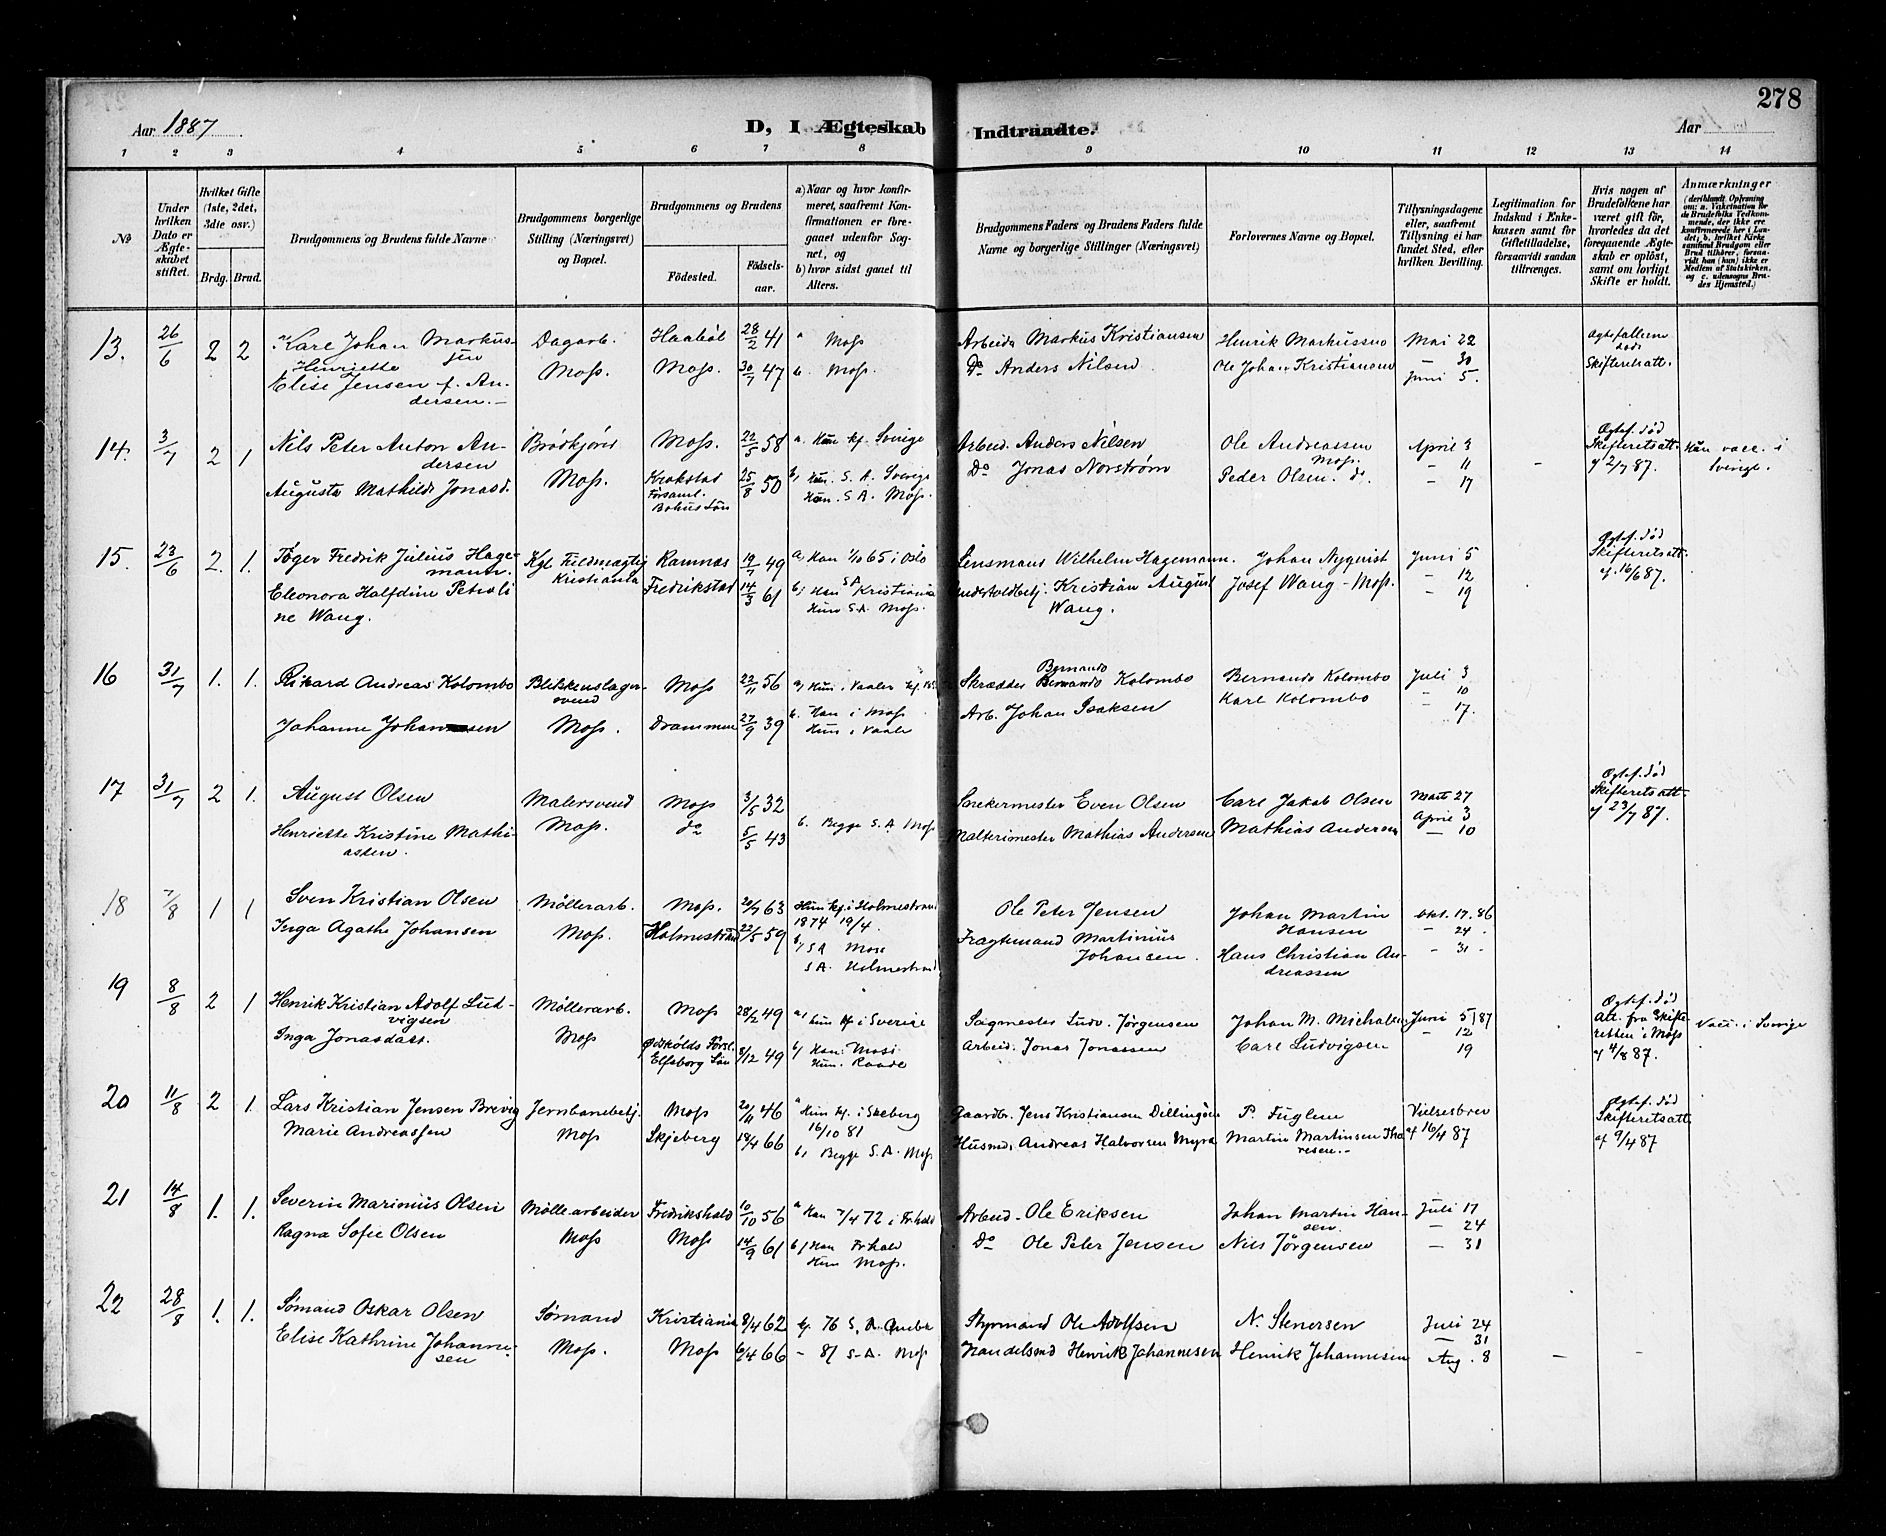 278
Aar 1887
D, I Ægteskab Indtraadte.
Aar
1 2 3 4 5 6 7 8 9 10 11 12 13 14
No
Under hvilken Dato er Ægteskabet stiftet.
Hvilket Gifte (1ste, 2det, 3die osv.)
Brdg. Brud.
Brudgommens og Brudens fulde Navne
Brudgommens borgerlige Stilling (Næringsvei) og Bopæl.
Brudgommens og Brudens
Födested. Födselsaar.
a) Naar og hvor konfirmeret, saafremt Konfirmationen er foregaaet udenfor Sognet, og
b) hvor sidst gaaet til Alters.
Brudgommens Faders og Brudens Faders fulde Navne og borgerlige Stillinger (Næringsvei)
Forlovernes Navne og Bopæl.
Tillysningsdagene eller, saafremt Tillysning ei har fundet Sted, efter hvilken Bevilling.
Legitimation for Indskud i Enkekassen samt for Giftetilladelse, forsaavidt saadan tiltrænges.
Hvis nogen af Brudefolkene har været gift för, hvorledes da det foregaaende Ægteskab er oplöst, samt om lovligt Skifte er holdt.
Anmærkninger
13. 26/6 2 2
Karl Johan Markussen
Henriette
Elise Jensen f. Andersen.
Dagarb.
Moss.
Haabøl 28/2 41
Moss. 30/7 47
a Moss
b. Moss.
Arbeider Markus Kristiansen
Do Anders Nilsen
Henrik Markussen
Ole Johan Kristiansen
Mai 22
— 30
Juni 5.
Ægtefællerne
døde
Skifteretsatt.
14. 3/7 2 1
Nils Peter Anton Andersen
Augusta Mathilde Jonasd.
Brødkjører
Moss.
Moss. 22/5 58
Krokstad
Forsaml.
Bohus Län 25/8 50
a. Hun kf. Sverige
b, Hun. S. A. Sverige
Han. S A. Moss.
Arbeid. Anders Nilsen
Do Jonas Norstrøm
Ole Andreassen
Moss.
Peder Olsen. do.
April 3
— 11
— 17
Ægtef. død
Skifteretsatt.
af 2/7 87.
Hun vacc. i
Sverige.
15. 23/6 2. 1.
Tøger Fredrik Julius Hagemann.
Eleonora Halfdine Petroline Wang.
Kgl Fuldmægtig
Kristiania
Ramnes 19/7 49
Fredrikstad 14/3 61
a, Han 1/10 65 i Oslo
b, Han S A Kristiania
Hun S. A. Moss.
Lensmans Wilhelm Hagemann.
Kristian August
Wang.
Johan Nyquist
Josef Wang - Moss.
Juni 5
— 12
— 19
Ægtef. død
Skifteretsatt.
af 16/6 87.
16 31/7 1. 1.
Rikard Andreas Kolombo
Johanne Johansen
Blikkenslagersvend
Moss.
Moss 22/11 56
Drammen 27/9 39
a, Hun i Vaaler kf.
b. Han i Moss
Hun i Vaaler
Bernando
Skrædder Bernando Kolombo
Arb. Johan Isaksen
Bernando Kolombo
Karl Kolombo
Juli 3
— 10
17.
17 31/7 2 1.
August Olsen
Henriette Kristine Mathiasden.
Malersvend
Moss.
Moss 3/5 32
do 5/5 43
b. Begge S. A Moss
Snekermester Even Olsen
Malermester Mathias Andersen
Carl Jakob Olsen
Mathias Andersen
Marts 27
April 3
— 10
Ægtef. død
Skifteretsatt.
af 23/7 87.
18 7/8 1 1
Sven Kristian Olsen
Inga Agathe Johansen
Møllerarb.
Moss.
Moss. 20/7 63
Holmestrand 22/5 59
Hun kf. i Holmestrand
1874 19/4.
b, S A Moss
S A. Holmestrand
Ole Peter Jensen
Fragtemand Martinius
Johansen.
Johan Martin
Hansen
Hans Christian Andreassen
Okt. 17. 86
— 24 -
— 31 -
19 8/8 2 1
Henrik Kristian Adolf Ludvigsen
Inga Jonasdatt.
Møllerarb.
Moss
Moss 28/2 49
Ødskölds Förs.
Elfsborg Län 8/12 49
a, Hun kf i Sverige
b, Han. Moss
Hun. Raade
Sagmester Ludv. Jørgensen
Arbeid. Jonas Jonassen
Johan M. Michalsen
Carl Ludvigsen
Juni 5/87
" 12
19
Ægtef. død
Att. fra Skifteretten i Moss
af 4/8 87.
Vacc. i Sverige
20 11/8 2 1.
Lars Kristian Jensen Brevig
Marie Andreassen
Jernbanebetj.
Moss
Moss 20/11 46
Skjeberg 19/4 66
a Hun kf. i Skeberg
16/10 81
b, Begge S. A. Moss
Gaardbr. Jens Kristiansen Dillingøen
Husmd. Andreas Halvorsen Myra
P. Fuglem
Martin Martinsen
Vielsesbrev
af 16/4 87
Ægtef. død
Skifteretsatt.
af 9/4 87
21 14/8 1. 1.
Severin Marinius Olsen
Ragna Sofie Olsen
Møllearbeider
Moss
Fredrikshald 10/10 56
Moss 14/9 61
a Han 7/4 72 i Fr.hald
b/ Han Fr hald
Hun Moss.
Arbeid. Ole Eriksen
Do Ole Peter Jensen
Johan Martin Hansen.
Nils Jørgensen
Juli 17
— 24
— 31
22 28/8 1. 1.
Sømand Oskar Olsen
Elise Kathrine Johannesen
Sømand
Moss.
Kristiania 8/4 62
Moss 6/4 66
kf. 76 S. A.
- 81 S. A. Moss
Styrmand Ole Adolfsen
Handelsmd Henrik Johannesen
N. Stenersen
Henrik Johannesen
Juli 24
— 31
Aug. 8